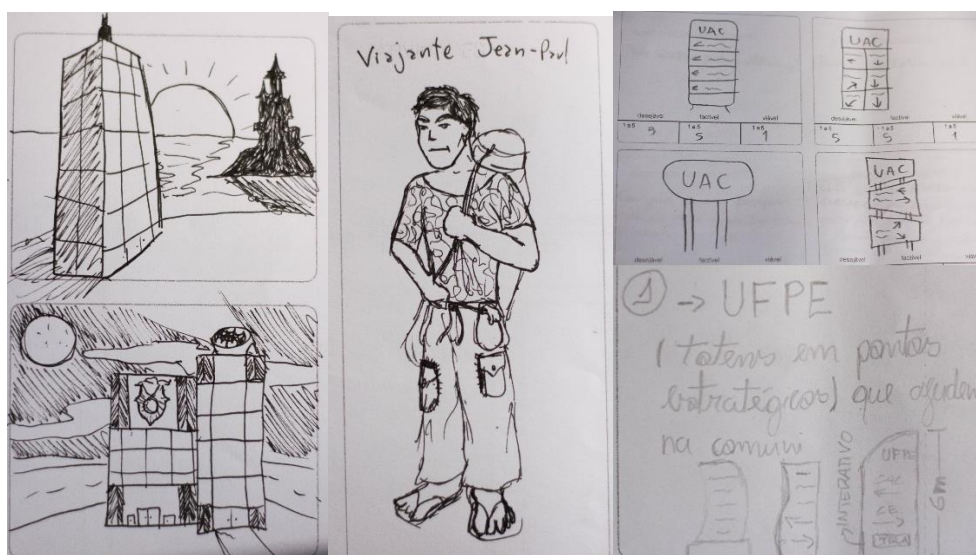 Viajante Jean-Paul
UAC
desejável factível viável
1 a 5 1 a 5 5 1 a 5 1
UAC
desejável factível viável
1 a 5 5 1 a 5 5 1 a 5 1
UAC
desejável factível viável
UAC
desejável factível viável
1 → UFPE
(totens em pontos
estratégicos) que ajudem
na comuni
INTERATIVO
UFPE
CE
6m